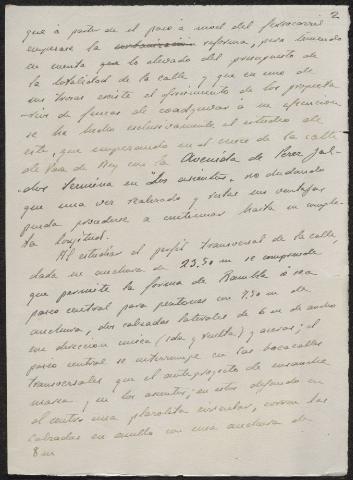 2
que á partir de el paso á nivel del ferrocarril
empezase la urbanización reforma, pero teniendo
en cuenta que lo elevado del presupuesto de
la totalidad de la calle y que en uno de
sus trozos existe el ofrecimiento de los propieta-
rios de fincas de coadyuvar á su ejecucion
se ha hecho exclusivamente el estudio de
este, que empezando en el cruce de la calle
de de Rey con la Avenida de Perez Gal-
dós termina en "Los asientos", no dudando
que una vez realizado y vistas sus ventajas
pueda procederse a continuar hasta su comple-
ta longitud.
Al estudiar el perfil transversal de la calle,
dada su anchura de 23,50 m se comprende
que permite la forma de Rambla ó sea
paseo central para peatones con 7,50 m de
anchura, dos calzadas laterales de 6 m de ancho
en direccion unica (ida y vuelta) y aceras; el
paseo central se interrumpe en las bocacalles
transversales que el anteproyecto de ensanche
marca y en los asientos; en estos dejando en
el centro una plazoleta circular, corren las
calzadas en anillo con una anchura de
8 m